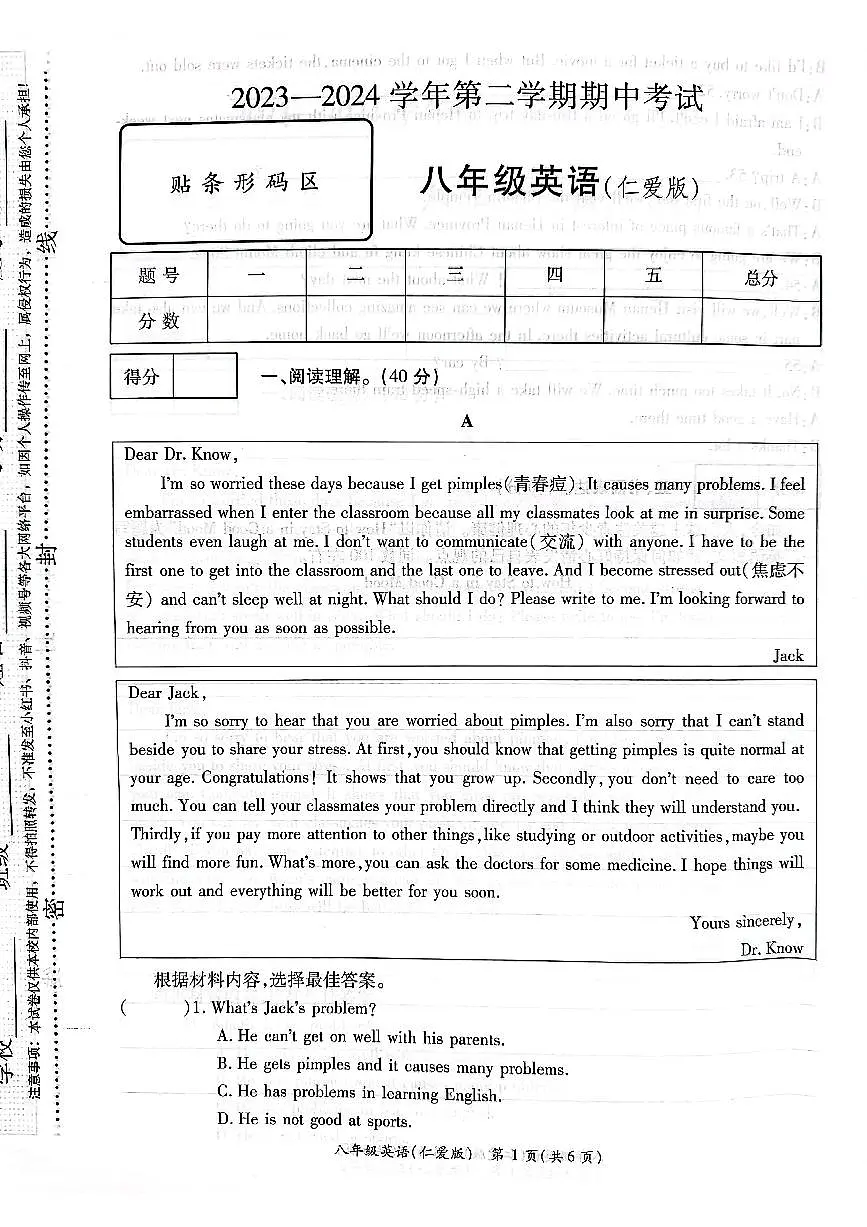 2023—2024学年第二学期期中考试
贴条形码区
八年级英语(仁爱版)
题号 一 二 三 四 五 总分
分数
得分
一、阅读理解。(40分)
A
Dear Dr. Know,
I'm so worried these days because I get pimples(青春痘). It causes many problems. I feel
embarrassed when I enter the classroom because all my classmates look at me in surprise. Some
students even laugh at me. I don't want to communicate(交流) with anyone. I have to be the
first one to get into the classroom and the last one to leave. And I become stressed out(焦虑不
安) and can't sleep well at night. What should I do? Please write to me. I'm looking forward to
hearing from you as soon as possible.
Jack
Dear Jack,
I'm so sorry to hear that you are worried about pimples. I'm also sorry that I can't stand
beside you to share your stress. At first, you should know that getting pimples is quite normal at
your age. Congratulations! It shows that you grow up. Secondly, you don't need to care too
much. You can tell your classmates your problem directly and I think they will understand you.
Thirdly, if you pay more attention to other things, like studying or outdoor activities, maybe you
will find more fun. What's more, you can ask the doctors for some medicine. I hope things will
work out and everything will be better for you soon.
Yours sincerely,
Dr. Know
根据材料内容,选择最佳答案。
( )1. What's Jack's problem?
A. He can't get on well with his parents.
B. He gets pimples and it causes many problems.
C. He has problems in learning English.
D. He is not good at sports.
八年级英语(仁爱版) 第1页(共6页)
注意事项:本试卷仅供本校内部使用,不得拍照转发,不准发至小红书、抖音、视频号等各大网络平台,如因个人操作传至网上,属侵权行为,造成的损失由您个人承担!
密 封 线
学校
班级